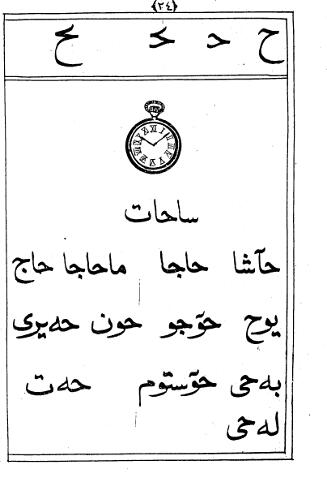 ﴿٢٤﴾
ح حـ ـحـ ـح
ساحات
حآشا حاجا ماحاجا حاج
یوح حوٓجو حون حەیری
بەحی حوٓستوم حەت
لەحی